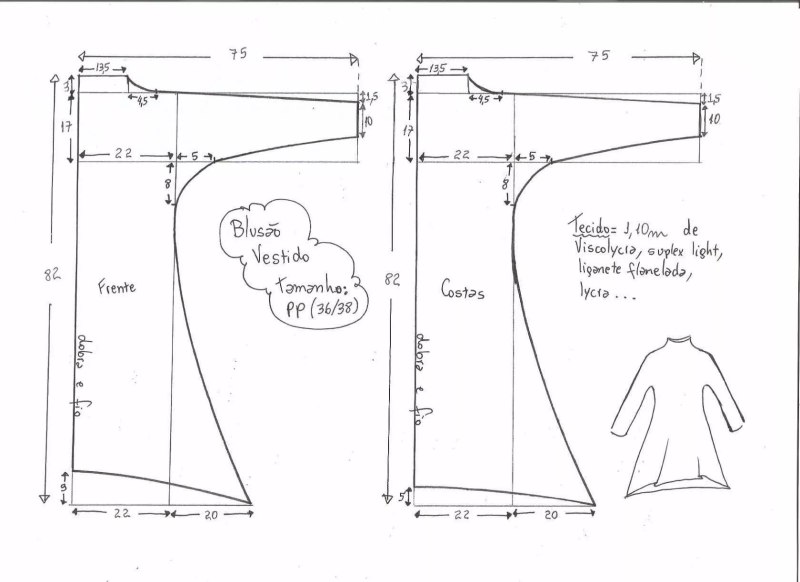 75
13,5
3
4,5
1,5
10
17
22
5
8
82
Frente
dobra e fio
9
22
20
Blusão
Vestido
Tamanho:
PP (36/38)
75
13,5
3
4,5
1,5
10
17
22
5
8
82
Costas
dobra e fio
5
22
20
Tecido= 1,10m de
Viscolycra, suplex light,
liganete flanelada,
lycra...